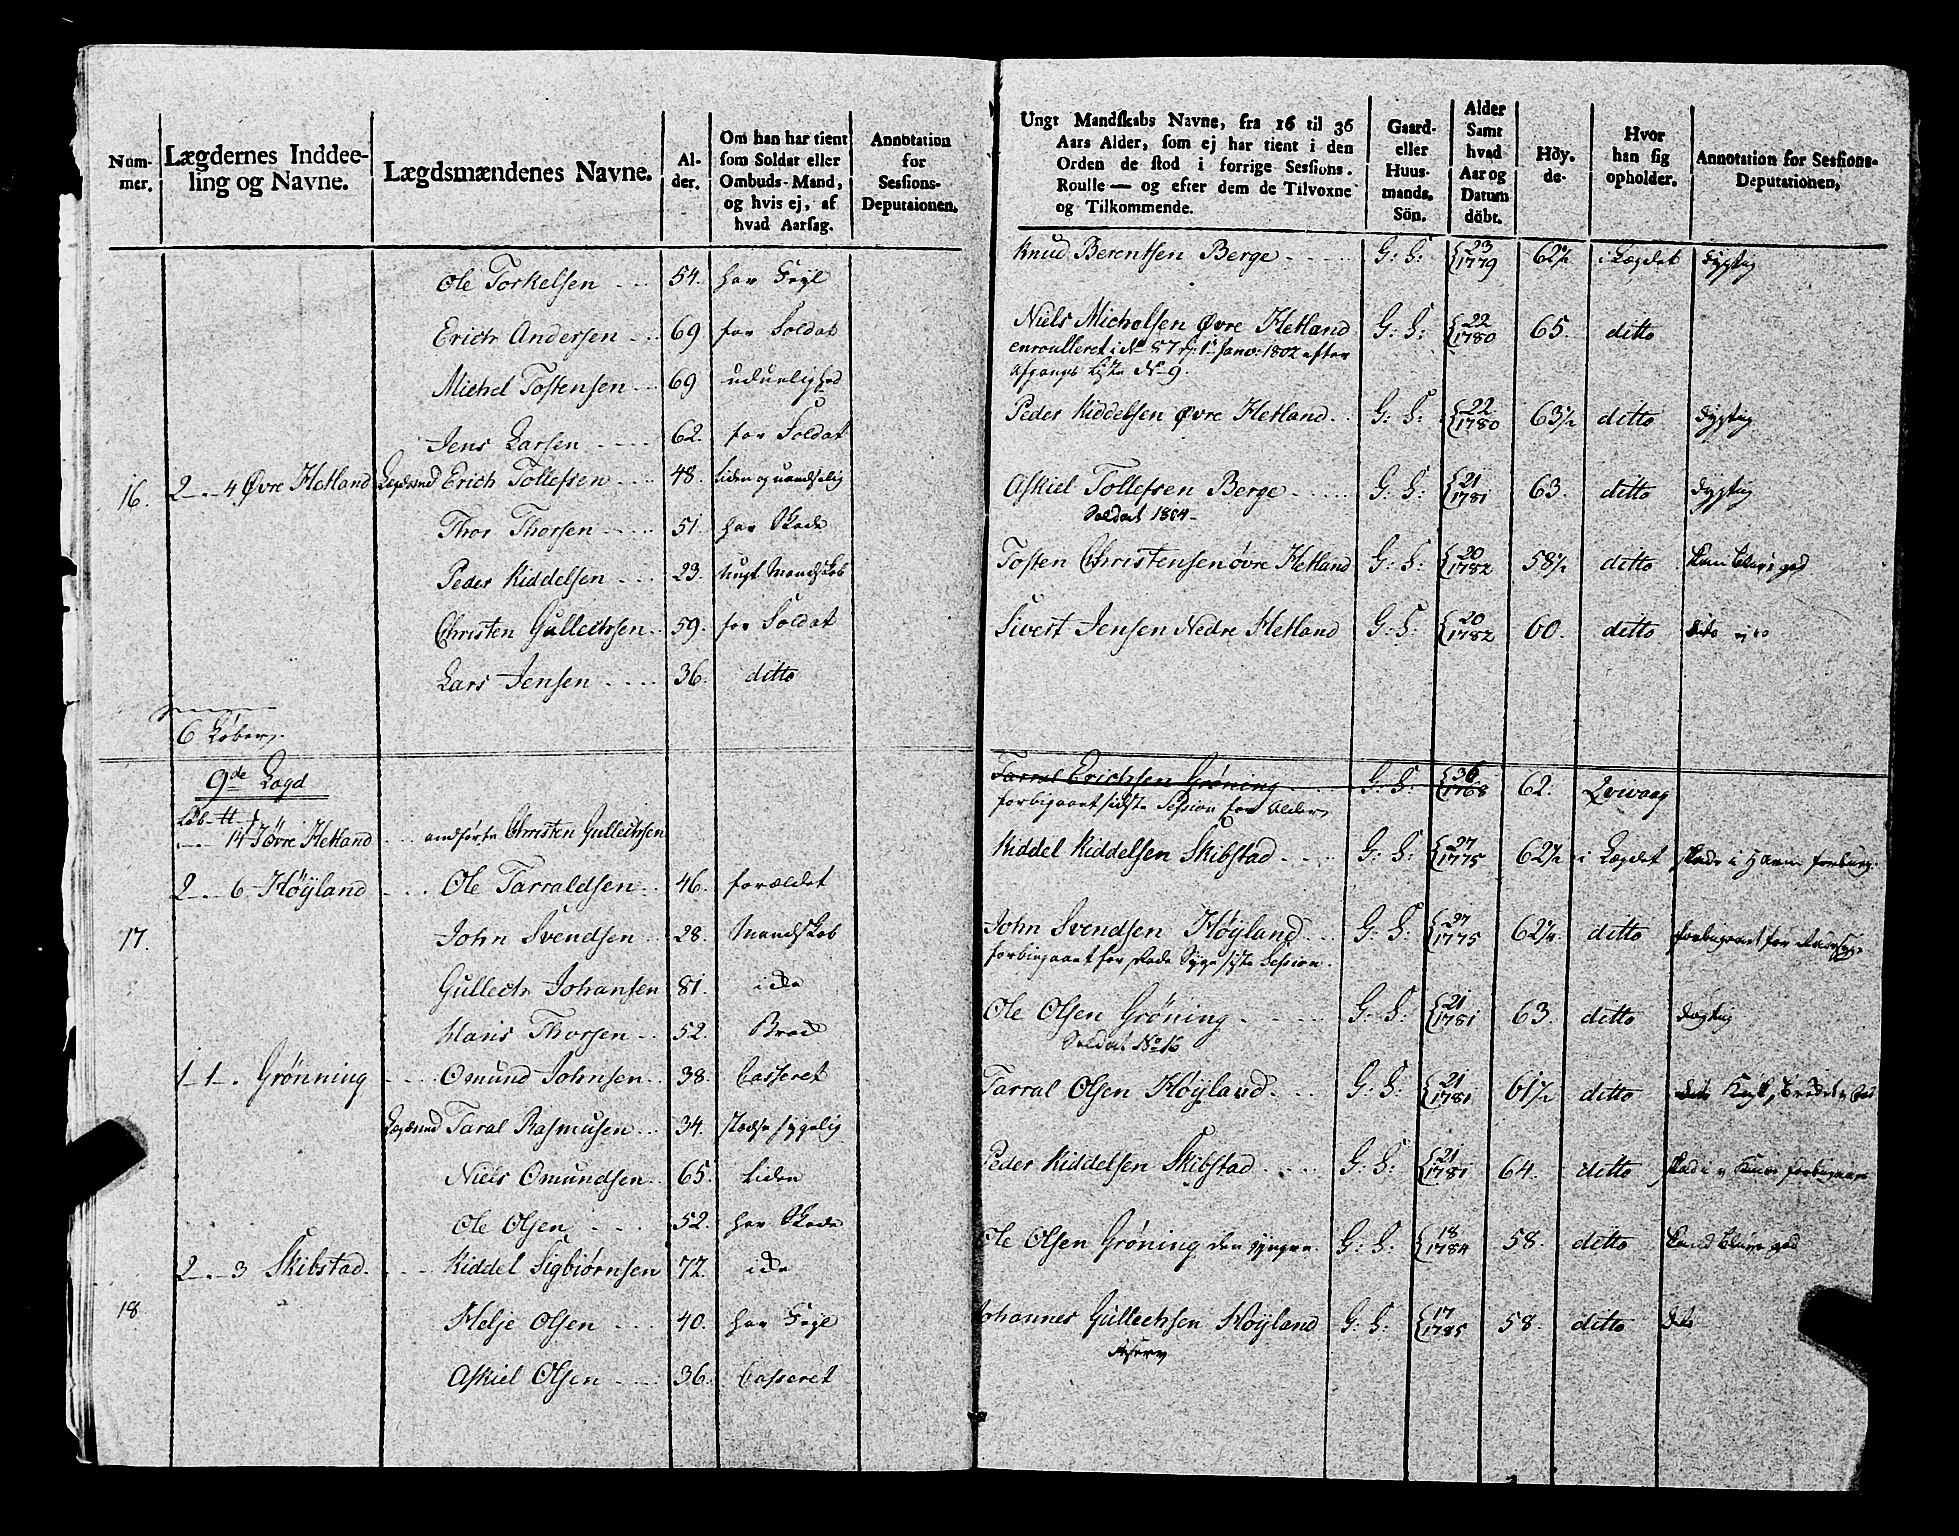 Num-
mer.
Lægdernes Inddee-
ling og Navne.
Lægdsmændenes Navne.
Al-
der.
Om han har tient
som Soldat eller
Ombuds-Mand,
og hvis ej, af
hvad Aarsag.
Annotation
for
Sessions-
Deputaionen.
Ole Torkelsen 54. har Fejl
Erich Andersen 69 for Soldat
Michel Tostensen 69 uduelighed
Jens Larsen 62. for Soldat
16. 2 - 4 Øvre Hetland Lægdsmd Erich Tollefsen 48. liden og uandselig
Thor Thorsen 51. har Skade
Peder Kiddelsen 23. Ungt Mandskab
Christen Gullechsen 59. for Soldat
Lars Jensen 36. ditto
6 Løber.
9de Lægd
14 Øvre Hetland andførte Christen Gullechsen
2 - 6 Höÿland Ole Tarraldsen 46. forældet
17. John Svendsen 28. Mandskab
Gullech Johansen 81. ide
Hans Thorsen 52. Brod
1 - 1 - Grönning Omund Johnsen 38. Casseret
Lægdsmd Taral Rasmusen 34. stedse sygelig
Niels Omundsen 65. Liden
Ole Olsen 52. har Skade
2 - 3 Skibstad. Kiddel Sigbiörnsen 72. ide
18 Helje Olsen 40. har Fejl
Askiel Olsen 36. Casseret
Ungt Mandskabs Navne, fra 16 til 36
Aars Alder, som ej har tient i den
Orden de stod i forrige Sessions-
Roulle — og efter dem de Tilvoxne
og Tilkommende.
Gaard-
eller
Huus-
mands-
Sön.
Alder
Samt
hvad
Aar og
Datum
döbt.
Höy-
de.
Hvor
han sig
opholder.
Annotation for Sessions-
Deputationen.
Knud Berentsen Berge G: S: 23 1779 62½ i Lægdet dygtig
Niels Micholsen Øvre Hetland G: S: 22 1780 65. ditto
enroulleret i No 87 1te Janv: 1802 efter
Afgangs Liste No 9.
Peder Kiddelsen Øvre Hetland G: S: 22 1780 63½ ditto dygtig
Askiel Tollefsen Berge G: S: 21 1781 63. ditto dygtig
Soldat 1804
Tosten Christensen øvre Hetland G: S: 20 1782 58½ ditto kan blive god
Sivert Jensen Nedre Hetland G: S: 20 1782 60. ditto dito
Tarral Erichsen Gröning G: S: 36 1768 62.
forbigaaet sidste Session for Alder
Kiddel Kiddelsen Skibstad G: S: 27 1775 62½ i Lægdet
John Svendsen Höÿland G: S: 27 1775 62¼ ditto
forbigaaet for Rade Syge siste Session.
Ole Olsen Gröning G: S: 21 1781 63. ditto dygtig
Soldat No 16
Tarral Olsen Höÿland G: S: 21 1781 61½ ditto
Peder Kiddelsen Skibstad G: S: 21 1781 64. ditto
Ole Olsen Gröning den yngre G: S: 18 1784 58. ditto kand blive god
Johannes Gullechsen Höÿland G: S: 17 1785 58. ditto dito
Reserv